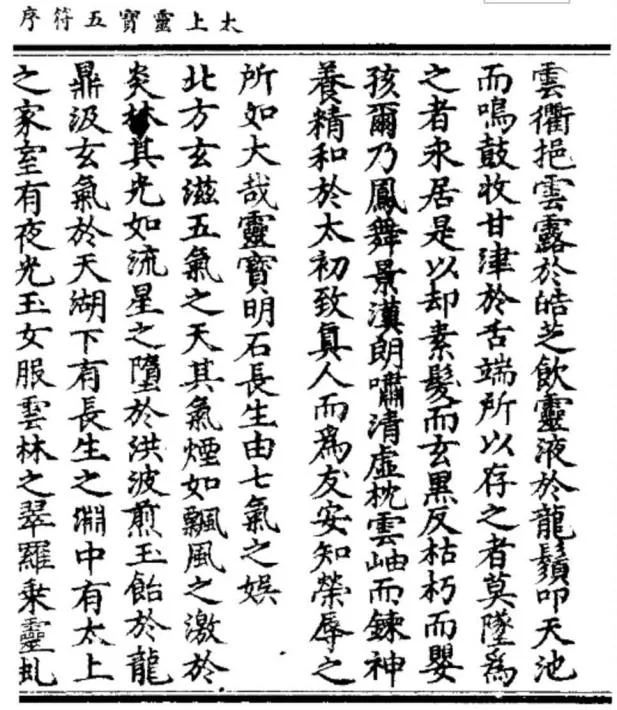 太上靈寶五符序
雲衢挹雲露於皓芝飲靈液於龍鬚叩天池
而鳴鼓收甘津於舌端所以存之者莫墜爲
之者永居是以却素髮而玄黑反枯朽而嬰
孩爾乃鳳舞景漢朗嘯清虛枕雲岫而鍊神
養精和於太初致真人而爲友安知榮辱之
所如大哉靈寶明石長生由七氣之娛
北方玄滋五氣之天其氣煙如飄風之激於
炎林其光如流星之墮於洪波煎玉飴於龍
鼎汲玄氣於天湖下有長生之淵中有太上
之家室有夜光玉女服雲林之翠羅乘靈虬